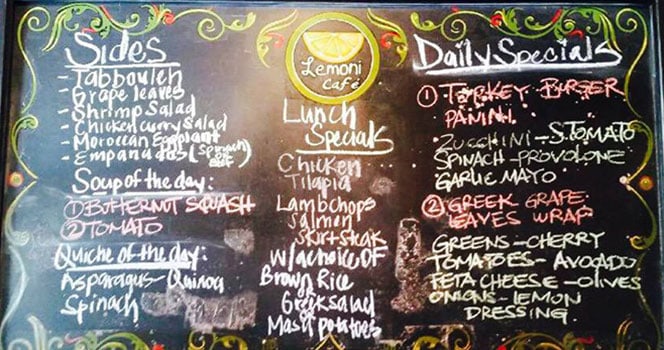 Sides
- Tabbouleh
- Grape leaves
- Shrimp Salad
- Chicken curry Salad
- Moroccan Eggplant
- Empanadas (Spinach
Beef
Soup of the day:
① BUTTERNUT SQUASH
② TOMATO
Quiche of the day:
Asparagus - Quinoa
Spinach
Lemoni
Café
Lunch
Specials
Chicken
Tilapia
Lambchops
Salmon
Skirt steak
w/a choice OF
Brown Rice
Greek salad
Mash potatoes
Daily Specials
① TURKEY BURGER
PANINI.
ZUCCHINI - S. TOMATO
SPINACH - PROVOLONE
GARLIC MAYO
② GREEK GRAPE
LEAVES WRAP
GREENS - CHERRY
TOMATOES - AVOCADO
FETA CHEESE - OLIVES
ONIONS - LEMON
DRESSING.